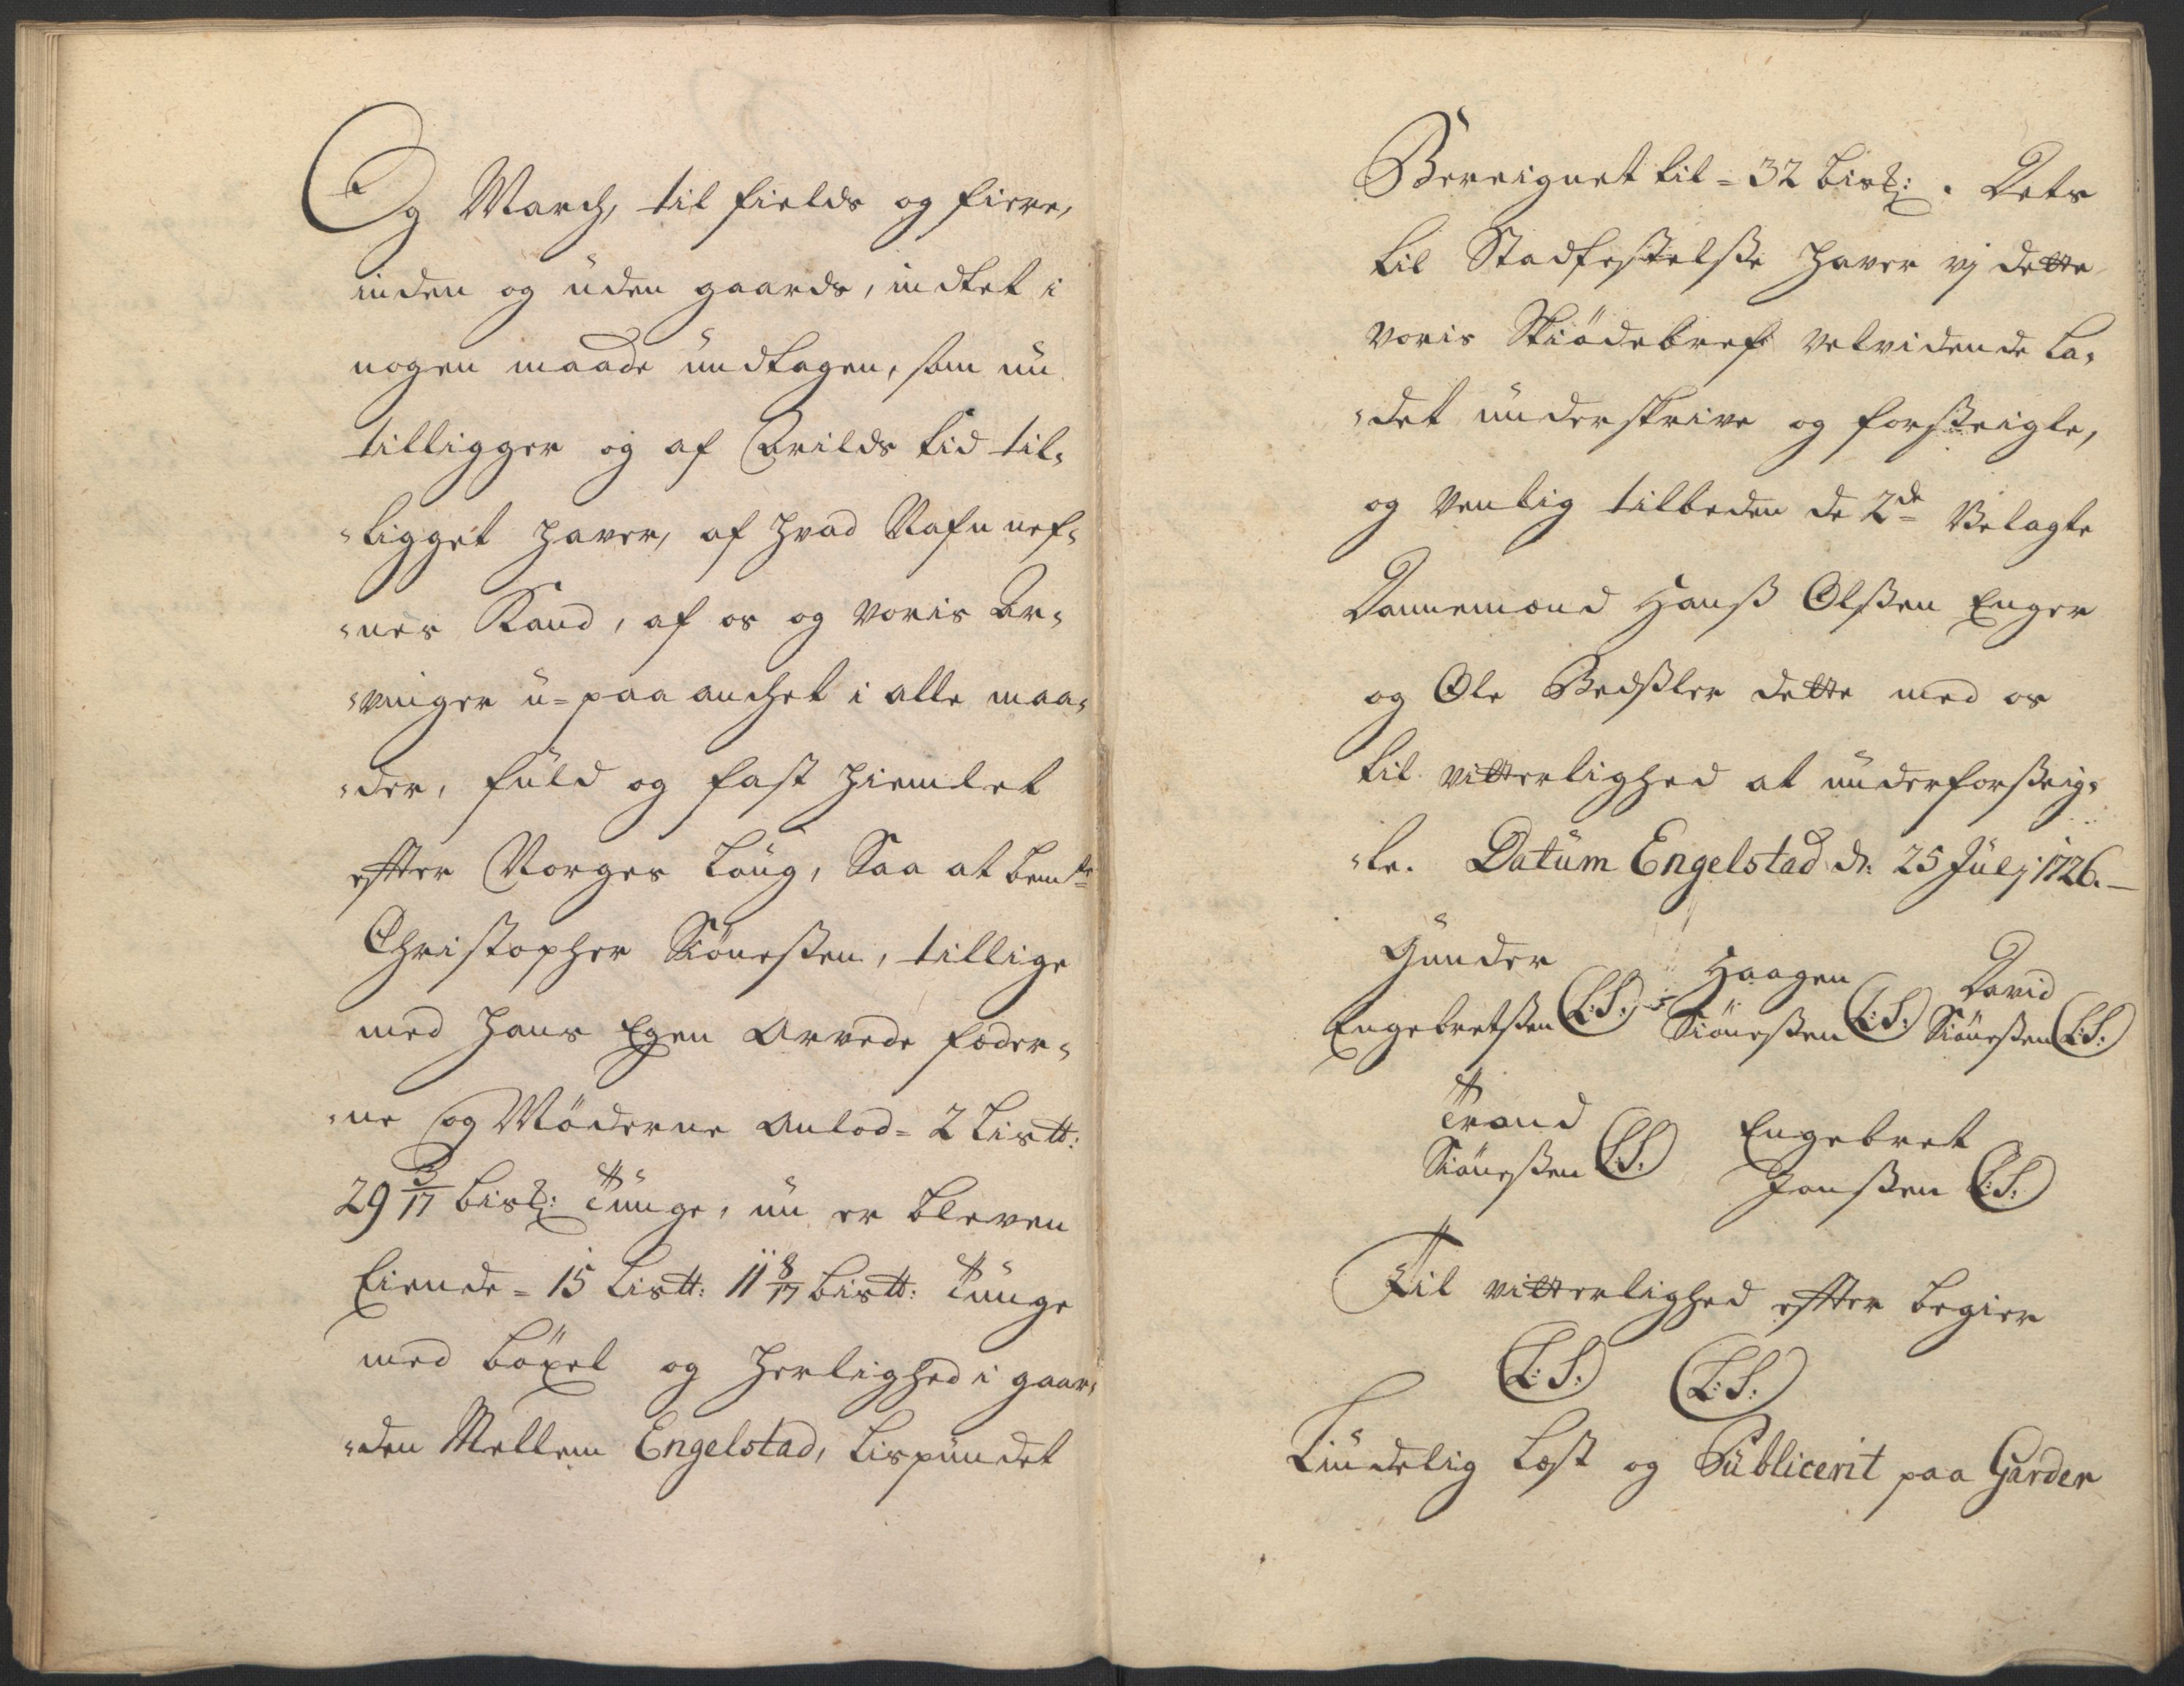 Og March, til fields og fiere,
inden og uden gaards, indtet i
nogen maade undtagen, som nu
tilligger og af Arilds tid til-
-ligget haver, af hvad Nafn nef-
-nes Kand, af os og voris Ar-
-vinger u-paa ancket i alle maa-
-der, fuld og fast hiemlet
effter Norges Laug, Saa at bemte
Christopher Siöuessen, tillige
med hans Egen Arvede fæder-
-ne og Möderne Anlod = 2 Listt:
29 3/17 bisℳ: Tunge, nu er bleven
Eiende = 15 Listt: 11 8/17 bistt: Tunge
med böxel og herlighed i gaar-
-den Mellem Engelstad, Lispundet
Bereignet til = 32 bisℳ: . Dets
til Stadfestelsse haver vj dette
voris Skiödebref velvidende La-
-det underskrive og forsseigle,
og venlig tilbeden de 2de Velagte
Dannemænd Hanss Olssen Enger
og Ole Bedssler dette med os
til vitterlighed at underforsseig-
-le. Datum Engelstad d: 25 Julj 1726. —
Gunder Haagen David
Engebretssen (L:S:) Siöuessen (L:S:) Siöuessen (L:S:)
Trond Engebret
Siöuessen (L:S:) Jonssen (L:S:)
Til vitterlighed effter begier
(L:S:) (L:S:)
Liudelig Læst og Publicerit paa Garder